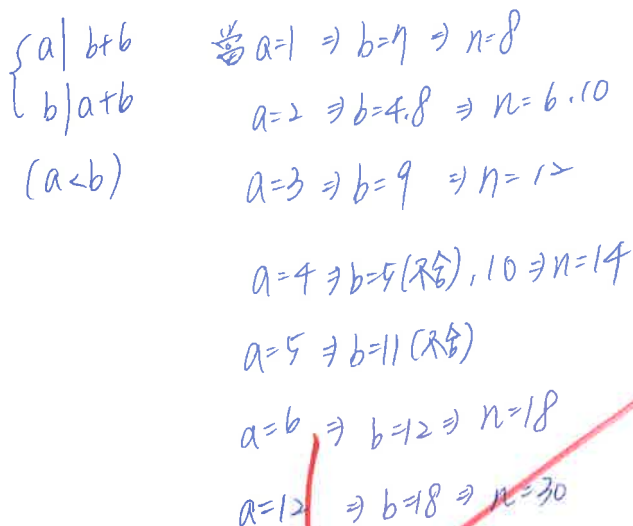 { a | b+6
b | a+6
(a<b)
當 a=1 ⇒ b=7 ⇒ n=8
a=2 ⇒ b=4.8 ⇒ n=6.10
a=3 ⇒ b=9 ⇒ n=12
a=4 ⇒ b=5(不合), 10 ⇒ n=14
a=5 ⇒ b=11(不合)
a=6 ⇒ b=12 ⇒ n=18
a=12 ⇒ b=18 ⇒ n=30